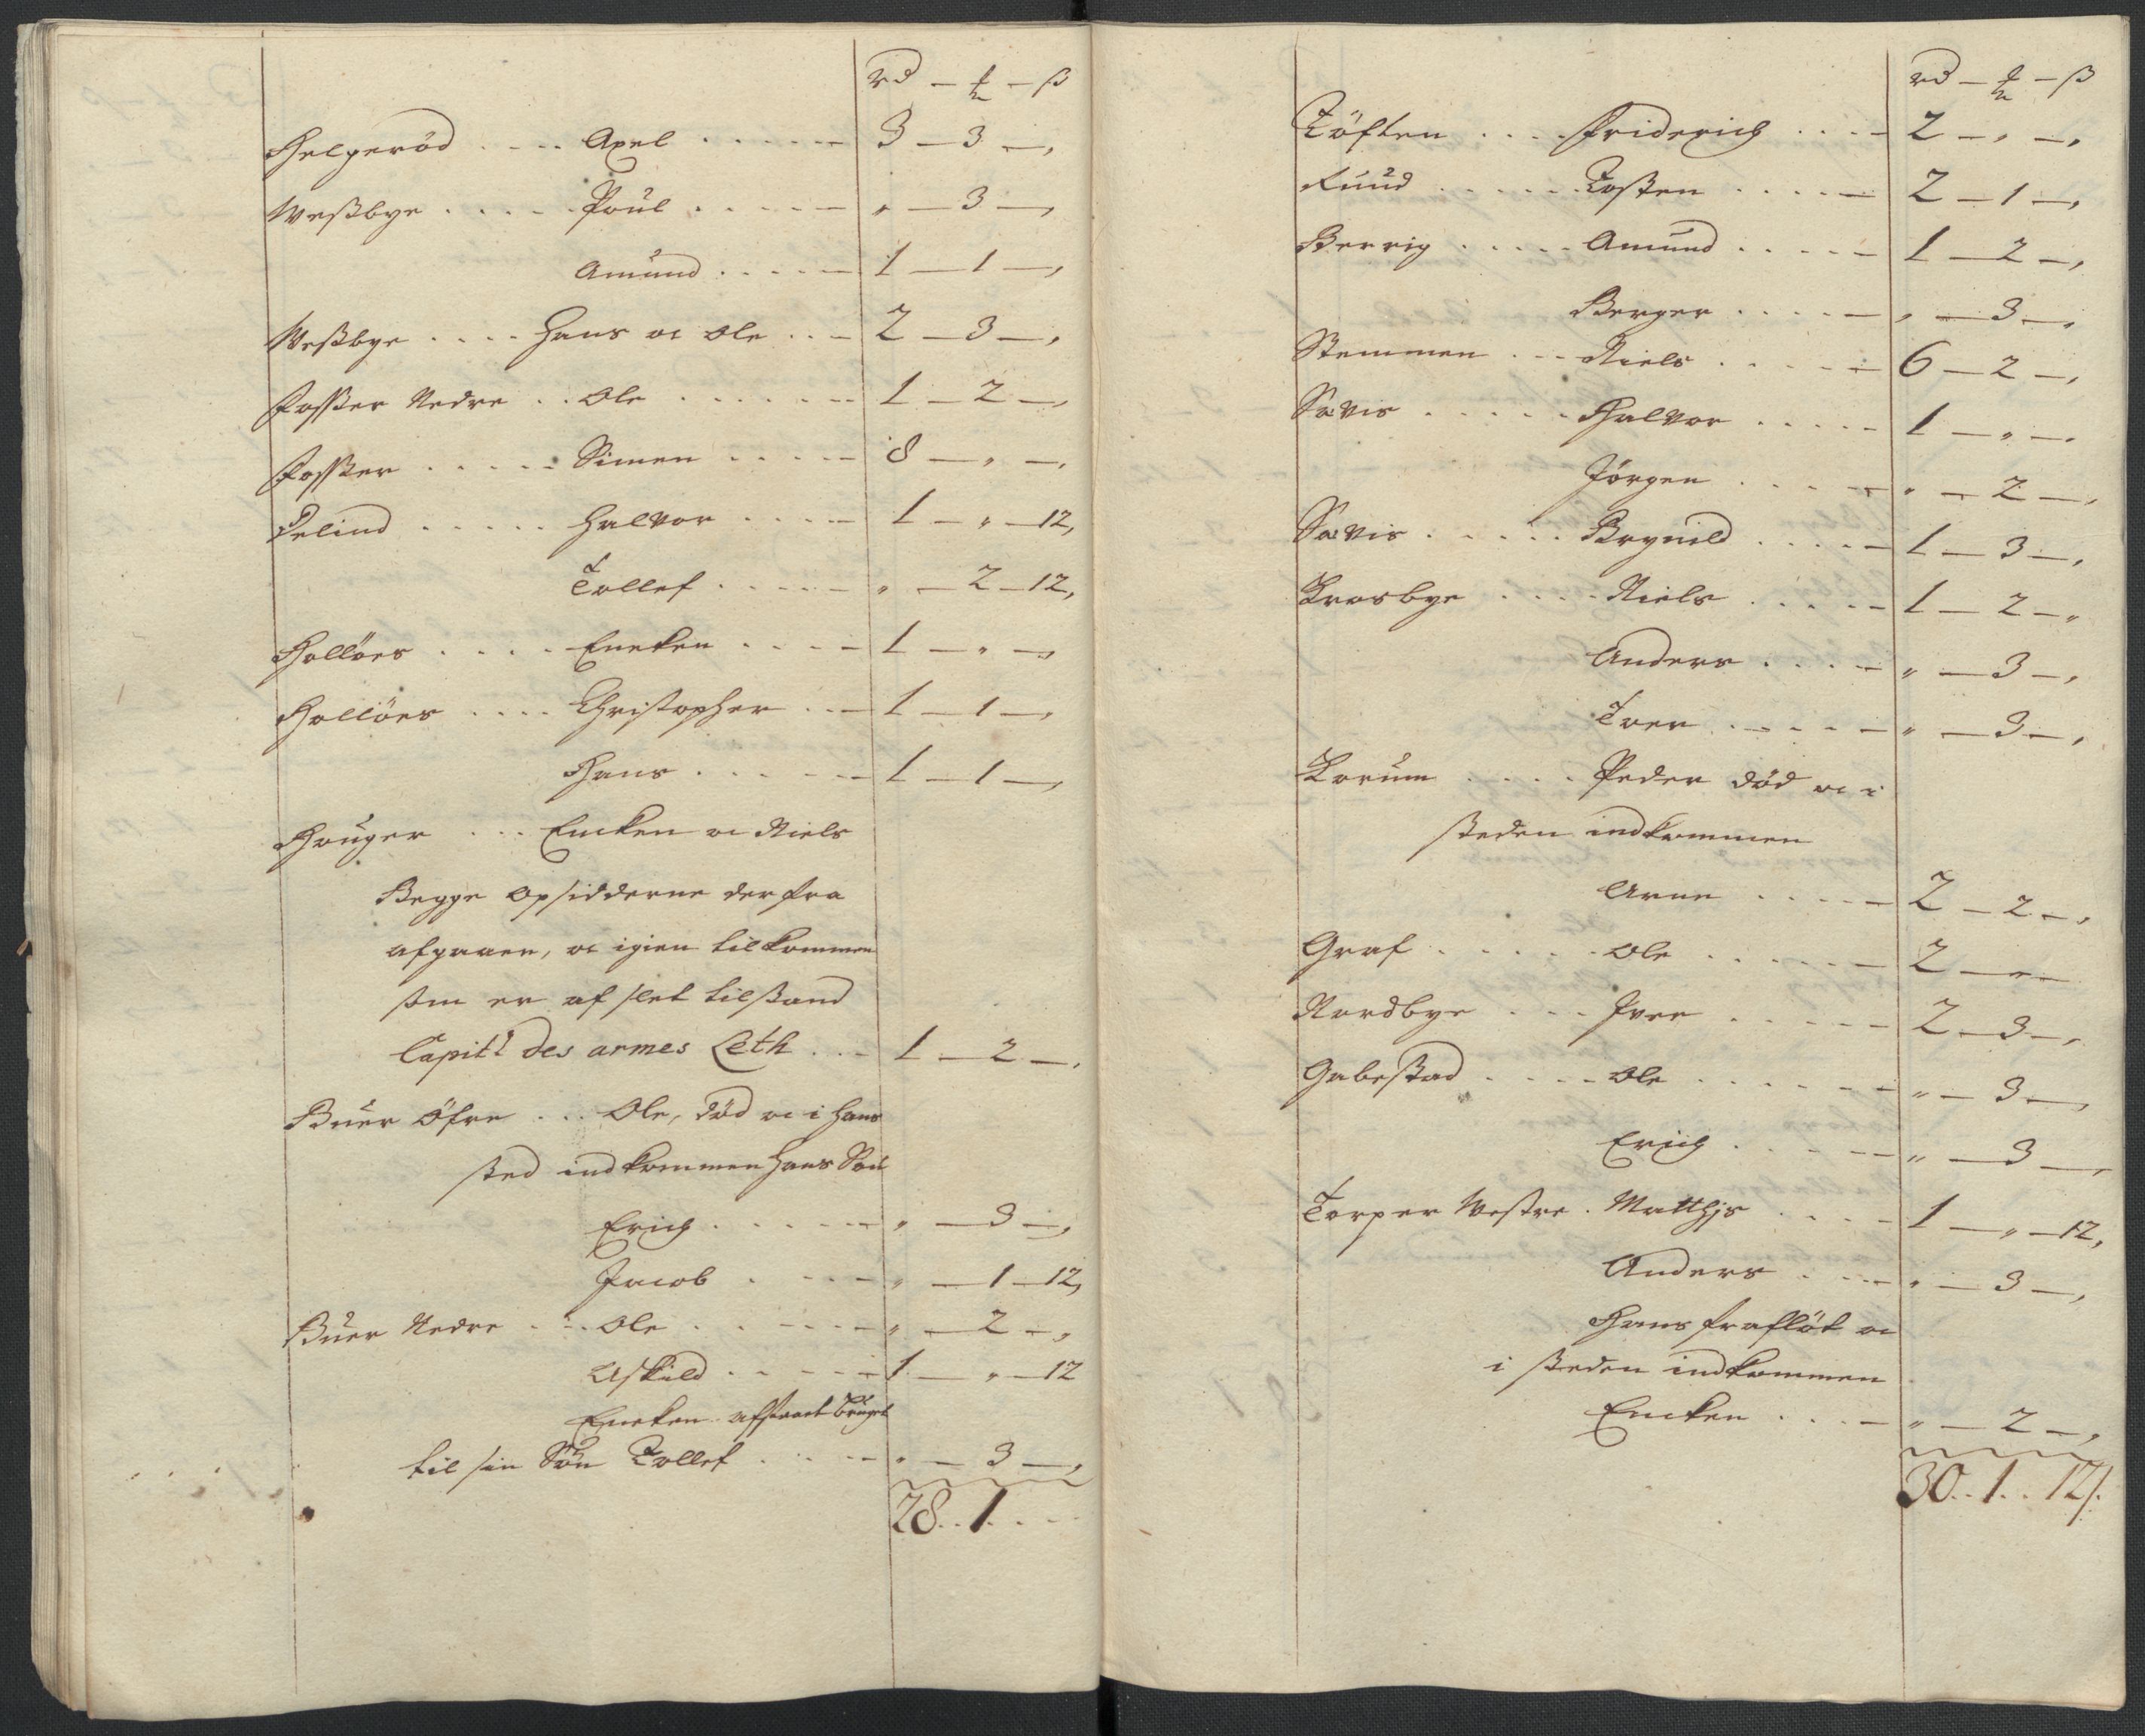 rd — ₰ — ß
Helgerød .... Axel ..... 3 — 3 — ,
Westbye .... Poul ..... „ — 3 — ,
Amund ..... 1 — 1 — ,
Westbye .... Hans oc Ole ... 2 — 3 — ,
Fosser Nedre .. Ole ...... 1 — 2 — ,
Fosser ..... Simen ..... 8 — „ — ,
Delind ..... Halvor .... 1 — „ — 12,
Tollef ..... „ — 2 — 12,
Holløes .... Eneken .... 1 — „ — ,
Holløes .... Christopher .. 1 — 1 — ,
Hans ..... 1 — 1 — ,
Houger ... Encken oc Niels
Begge opsidderne derfra
afgaaen, oc igien tilkommen
som er af slet tilstand
Capit: des armes Leth ... 1 — 2 — ,
Buer Øfre ... Ole, død oc i hans
sted indkommen hans Søn
Erich ..... „ — 3 — ,
Jacob .... „ — 1 — 12,
Buer Nedre ... Ole ..... „ — 2 — ,
Askild ..... 1 — „ — 12
Eneken afstaaet bruget
til sin Søn Tollef .... „ — 3 — ,
28 .. 1 . . .
rd — ₰ — ß
Tøften .... Friderich .... 2 — „ — ,
Ruud ..... Tosten ..... 2 — 1 — ,
Berrig ..... Amund ..... 1 — 2 — ,
Berger ..... „ — 3 — ,
Stemmen ... Niels ..... 6 — 2 — ,
Sævis ..... Halvor ..... 1 — „ — ,
Jørgen .... „ — 2 — ,
Sævis ..... Brynild ..... 1 — 3 — ,
Krosbye .... Niels ..... 1 — 2 — „
Anders .... „ — 3 — ,
Iver ..... „ — 3 — ,
Korum .... Peder død oc i
steden indkommen
Arne ..... 2 — 2 — ,
Graf ..... Ole ...... 2 — „ —
Nordbye ... Iver ..... 2 — 3 — ,
Gabestad .... Ole ...... „ — 3 — ,
Erich ..... „ — 3 — ,
Torper Westre . Matthjs .... 1 — „ — 12,
Anders .... „ — 3 — ,
Hans frafløt oc
i steden indkommen
Encken .... „ — 2 — ,
30 .. 1 .. 12/.